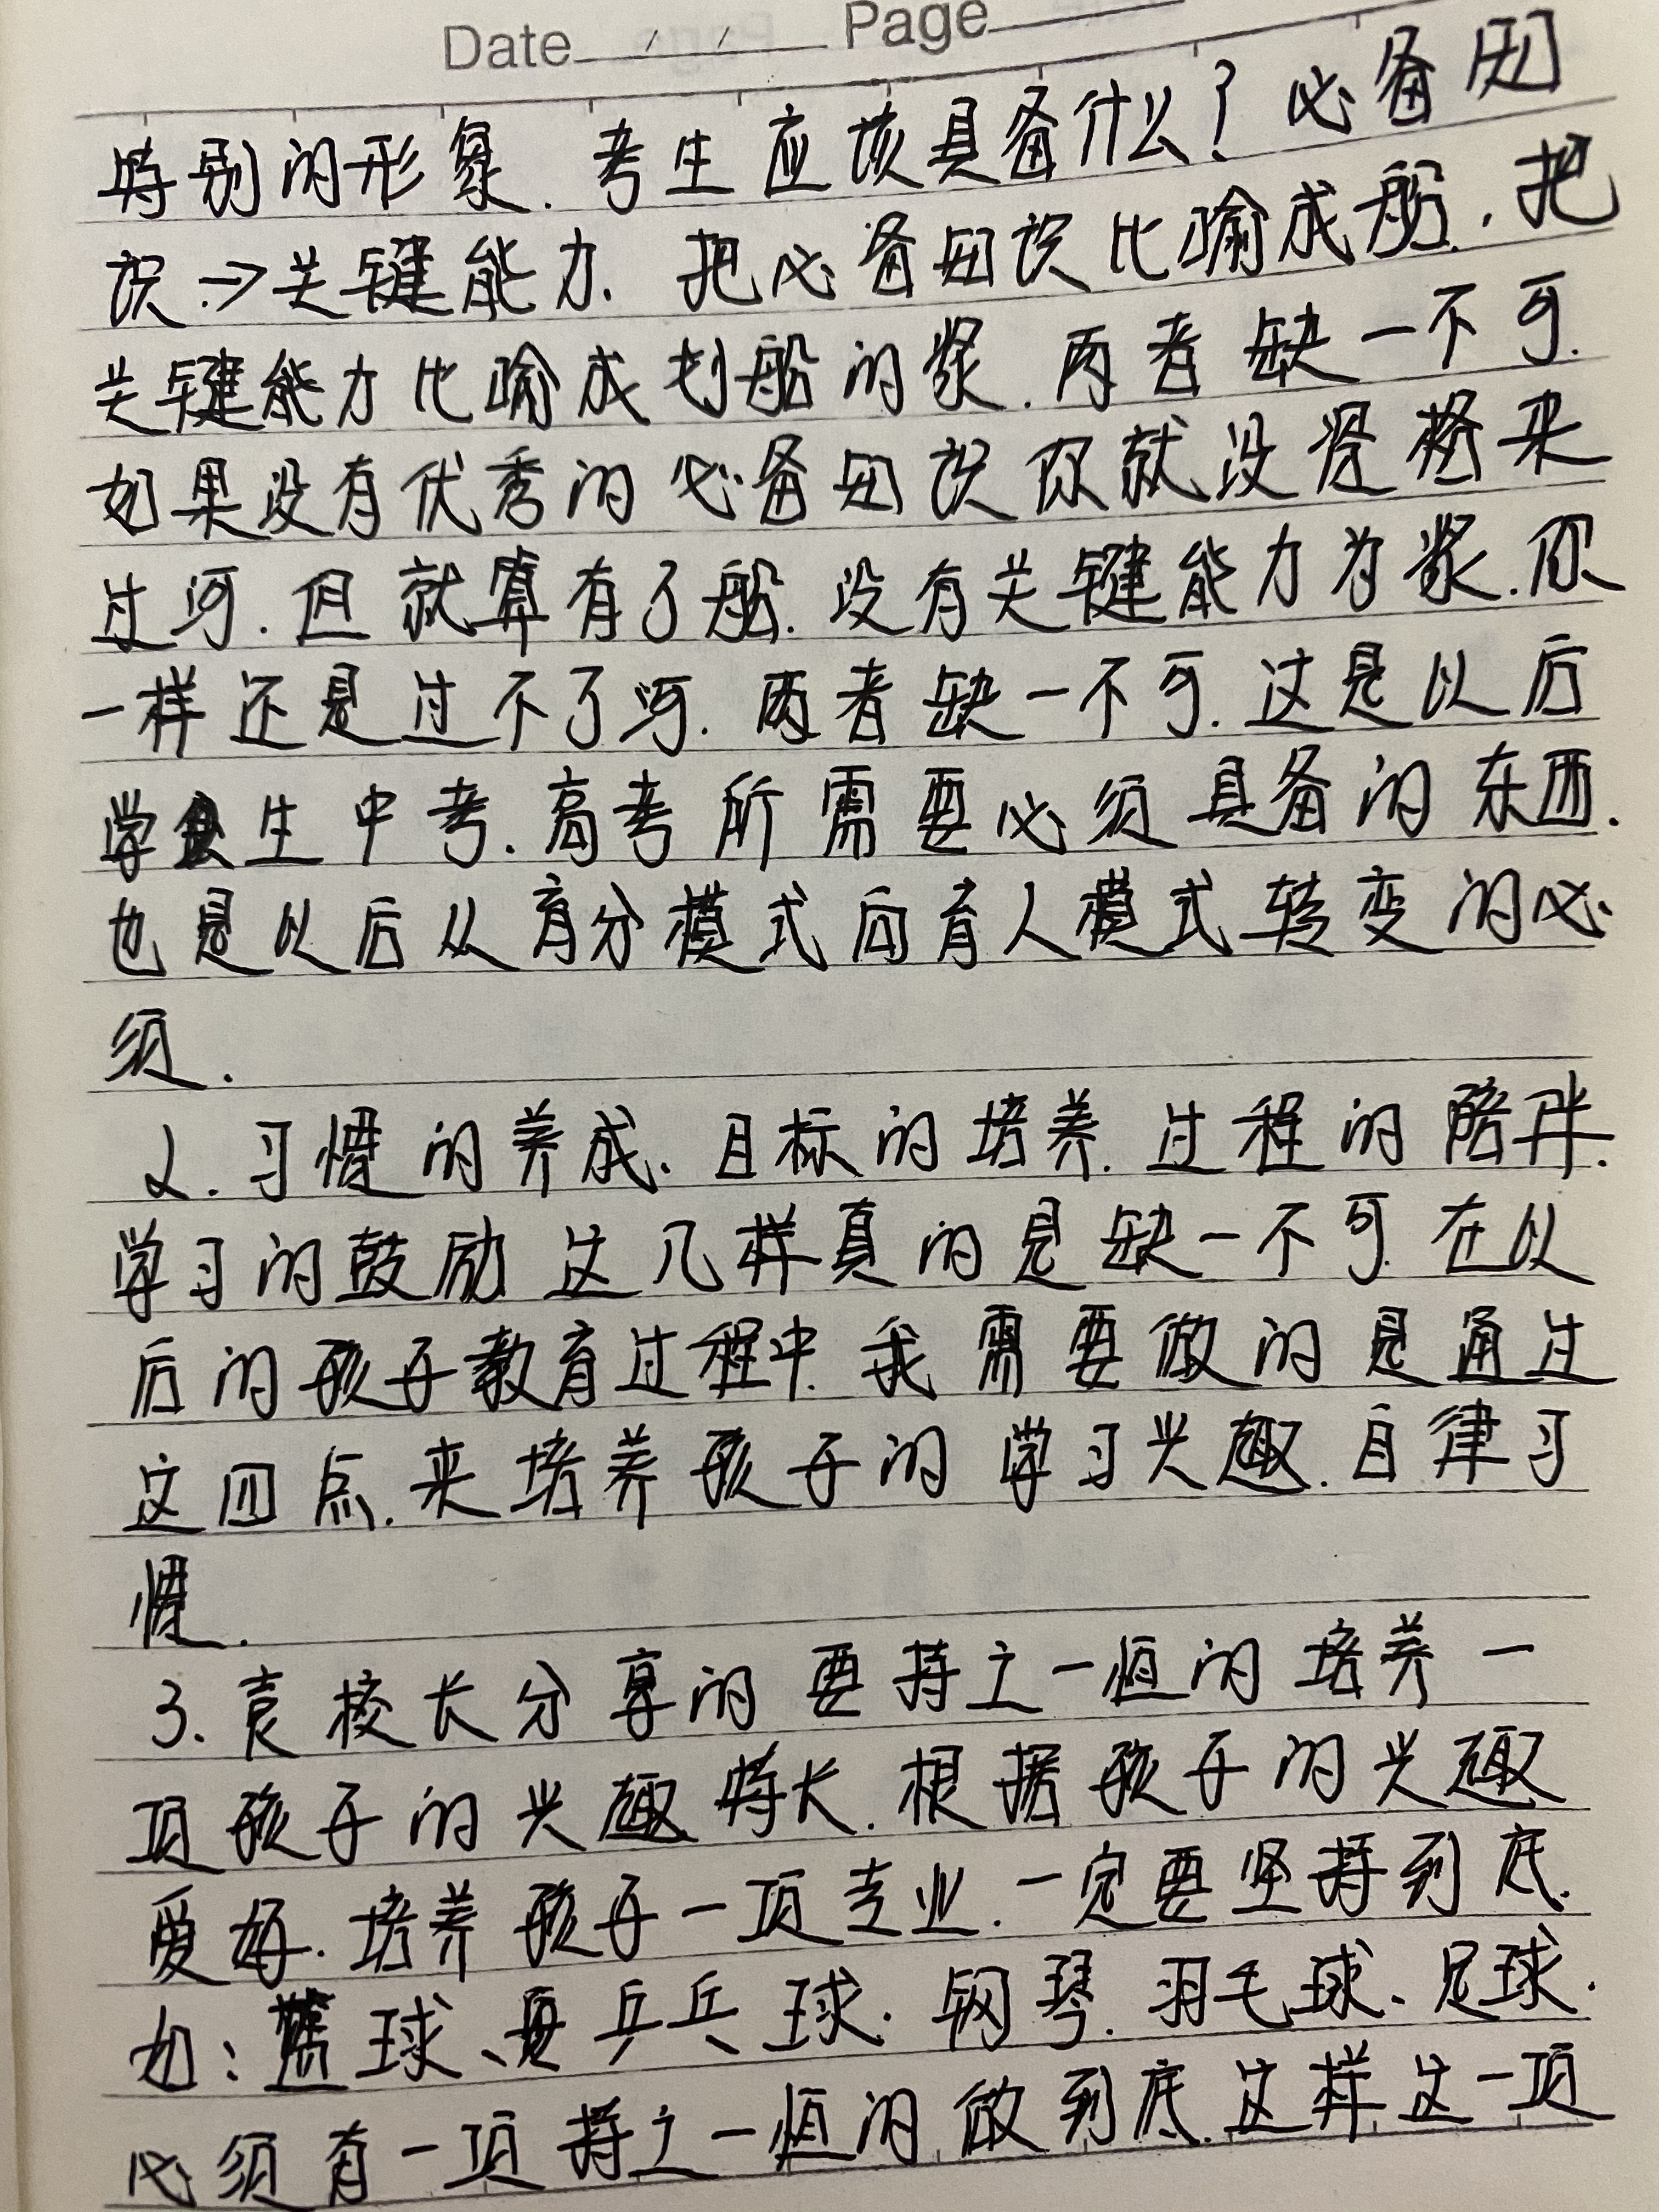 Date / / Page
特别的形象.考生应该具备什么?必备知
识→关键能力.把必备知识比喻成船.把
关键能力比喻成划船的桨.两者缺一不可.
如果没有优秀的必备知识你就没资格来
过河.但就算有了船.没有关键能力为桨.你
一样还是过不了河.两者缺一不可.这是以后
学生中考.高考所需要必须具备的东西.
也是以后从育分模式向育人模式转变的必
须.
2.习惯的养成、目标的培养.过程的陪伴.
学习的鼓励 这几样真的是缺一不可.在以
后的孩子教育过程中.我需要做的是通过
这四点.来培养孩子的学习兴趣.自律习
惯.
3.袁校长分享的要持之一恒的培养一
项孩子的兴趣特长.根据孩子的兴趣
爱好.培养孩子一项专业.一定要坚持到底.
如:篮球、乒乓球.钢琴.羽毛球、足球.
必须有一项持之一恒的做到底.这样这一项